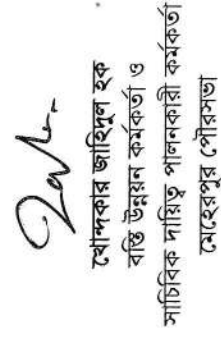 খোন্দকার জাহিদুল হক
বস্তি উন্নয়ন কর্মকর্তা ও
সাচিবিক দায়িত্ব পালনকারী কর্মকর্তা
মেহেরপুর পৌরসভা